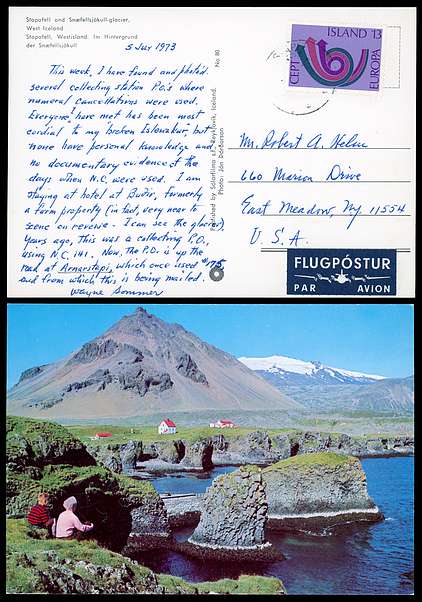 Stapafell and Snæfellsjökull-glacier,
West Iceland
Stapafell, Westisland. Im Hintergrund
der Snæfellsjökull
5 July 1973
This week, I have found and photo'd
several collecting station P.O.'s where
numeral cancellations were used.
Everyone I have met has been most
cordial to my "broken Íslenskur", but
none have personal knowledge and
no documentary evidence of the
days when N.C. were used. I am
staying at hotel at Buðir, formerly
a farm property (in fact, very near to
scene on reverse - I can see the glacier)
years ago. This was a collecting P.O.,
using N.C. 141. Now, the P.O. is up the
road at Arnarstapi, which once used #175
and from which this is being mailed.
Wayne Sommer
No 80
Published by Sólarfilma sf. Reykjavik, Iceland.
Photo: Jón Þórðarson
CEPT
ÍSLAND 13
EUROPA
Mr. Robert A. Helm
660 Marion Drive
East Meadow, Ny 11554
U.S.A.
FLUGPÓSTUR
PAR AVION